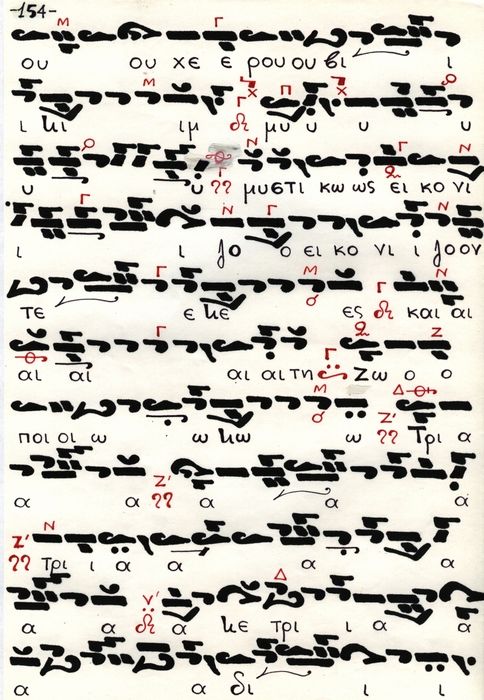 -154-
ου ου χε ε ρου ου βι ι
ι κι ιμ μυ υ υ υ υ
υ υ μυστι κω ως ει κο νι
ι ζο ο ει κο νι ι ζον
τε ε κε ες και αι
αι αι αι αι τη ζω ο ο
ποι οι ω ω κω ω Τρι α
α α α α α
τρι ι α α α α
α α α κε τρι ι α α
α α δι ι ι